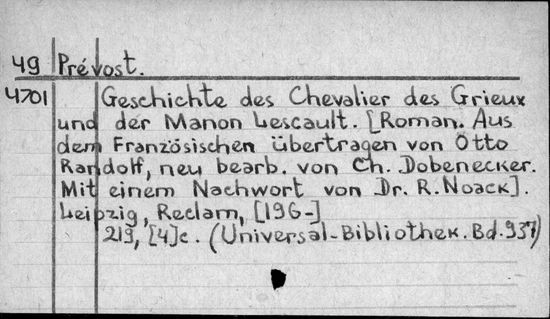 49 Prévost.
4701 Geschichte des Chevalier des Grieux
und der Manon Lescault. [Roman. Aus
dem Französischen übertragen von Otto
Randolf, neu bearb. von Ch. Dobenecker.
Mit einem Nachwort von Dr. R. Noack].
Leipzig, Reclam, [196-]
219, [4]c. (Universal-Bibliothek. Bd. 937)